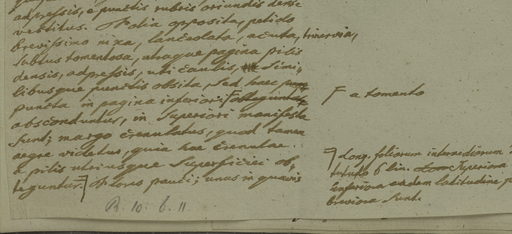 adpressis, e punctis rubris oriundis dense
vestitus. Folia opposita, petiolo
brevissimo nixa, lanceolata, acuta, trinervia,
subtus tomentosa, utraque pagina pilis
densis, adpressis, uti caulis, simi-
libusque punctis obsita, sed haec
puncta in pagina inferiori
absconduntur, in superiori manifesta
sunt; margo crenulatus, quod tamen
aegre videtur, quia hae crenulae
a pilis utriusque superficiei ob-
teguntur. Flores pauci; unus in quavis
R. 10. 6. 11.
F a tomento
Long. foliorum intermediorum
6 lin. superiora
inferiora eadem latitudine
breviora sunt.